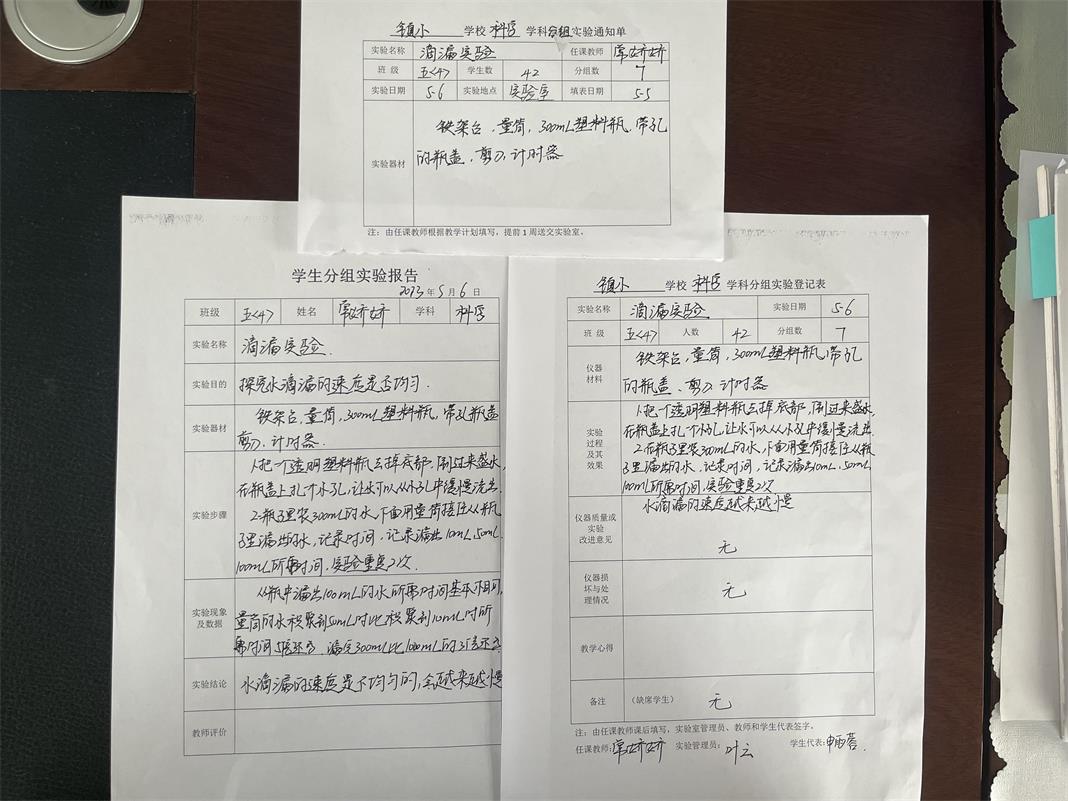 镇小 学校 科学 学科分组实验通知单
实验名称 滴漏实验 任课教师 常娇娇
班 级 五<4> 学生数 42 分组数 7
实验日期 5.6 实验地点 实验室 填表日期 5.5
实验器材 铁架台,量筒,300mL塑料瓶,带孔
的瓶盖、剪刀,计时器
注:由任课教师根据教学计划填写,提前1周送交实验室。
学生分组实验报告
2023年5月6日
班级 五<4> 姓名 常娇娇 学科 科学
实验名称 滴漏实验.
实验目的 探究水滴漏的速度是否均匀.
实验器材 铁架台,量筒,300mL塑料瓶,带孔瓶盖
剪刀,计时器.
实验步骤 1.把一个透明塑料瓶去掉底部,倒过来盛水,
在瓶盖上扎一个小孔,让水可以从小孔中缓慢流出.
2.瓶子里装300mL的水,下面用量筒接住从瓶
子里漏出的水,记录时间,记录漏出10mL,50mL
100mL所需时间,实验重复2次.
实验现象及数据 从瓶中漏出100mL的水所需时间基本相同,
量筒的水积聚到50mL时比积聚到10mL时所
需时间5倍还多.漏完300mL比100mL的3倍还多
实验结论 水滴漏的速度是不均匀的,会越来越慢
教师评价
镇小 学校 科学 学科分组实验登记表
实验名称 滴漏实验 实验日期 5.6
班 级 五<4> 人数 42 分组数 7
仪器材料 铁架台,量筒,300mL塑料瓶,带孔
的瓶盖、剪刀 计时器
实验过程及其效果 1.把一个透明塑料瓶去掉底部,倒过来盛水,
在瓶盖上扎个小孔,让水可以从小孔中缓慢流出.
2.在瓶子里装300mL的水,下面用量筒接住从瓶
子里漏出的水,记录时间,记录漏出10mL,50mL
100mL所需时间,实验重复2次
水滴漏的速度越来越慢
仪器质量或实验改进意见 无
仪器损坏与处理情况 无
教学心得
备注 (缺席学生) 无
注:由任课教师课后填写,实验室管理员、教师和学生代表签字。
任课教师:常娇娇 实验管理员:叶云 学生代表:申雨蓉.